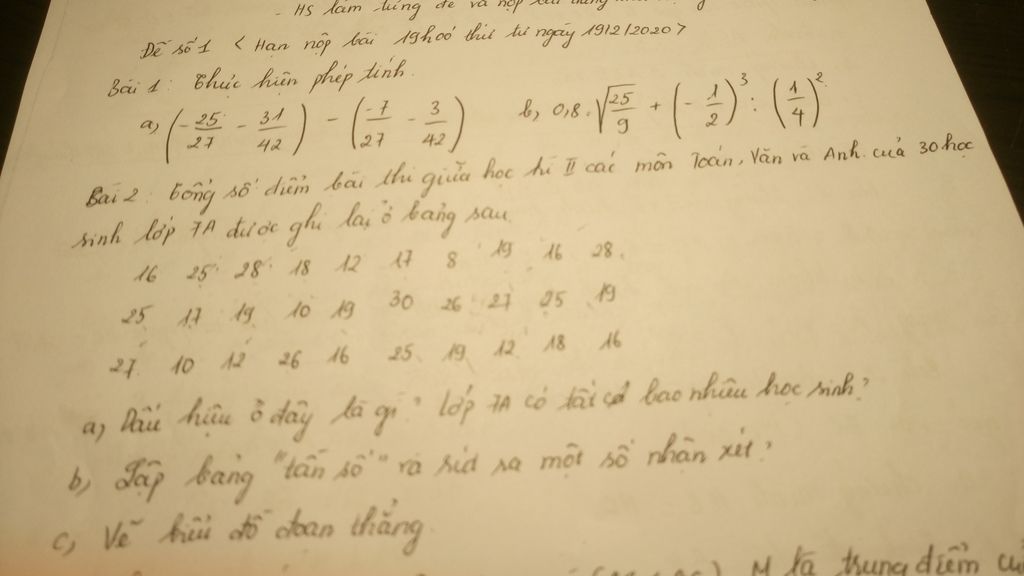 - HS làm từng đề và nộp
Đề số 1 < Hạn nộp bài 19h00 thứ tư ngày 19/2/2020>
Bài 1: Thực hiện phép tính.
a, (-25/27 - 31/42) - (-7/27 - 3/42) b, 0,8.√(25/9) + (-1/2)³ : (1/4)²
Bài 2: Tổng số điểm bài thi giữa học kì II các môn Toán, Văn và Anh của 30 học
sinh lớp 7A được ghi lại ở bảng sau
16 25 28 18 12 17 8 19 16 28.
25 17 19 10 19 30 26 27 25 19
27 10 12 26 16 25 19 12 18 16
a, Dấu hiệu ở đây là gì? Lớp 7A có tất cả bao nhiêu học sinh?
b, Lập bảng "tần số" và rút ra một số nhận xét?
c, Vẽ biểu đồ đoạn thẳng
M là trung điểm